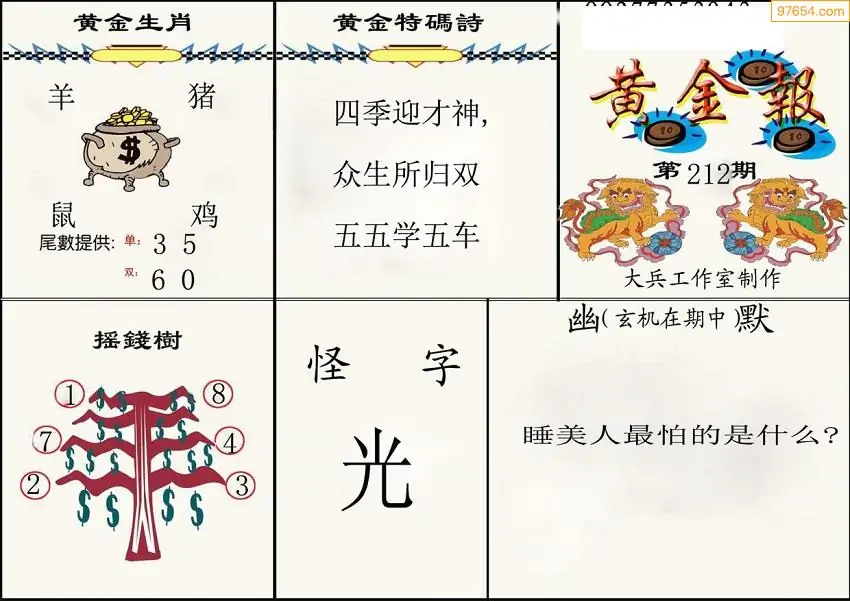 黄金生肖
羊 猪
$
鼠 鸡
尾數提供: 单: 3 5
双: 6 0
黄金特碼詩
四季迎才神,
众生所归双
五五学五车
97654.com
黄金報
10
10
10
第212期
大兵工作室制作
摇錢樹
① ⑧
⑦ ④
② ③
$ $ $ $
$ $ $ $
$ $ $ $ $ $
$ $ $ $
怪 字
光
幽(玄机在期中)默
睡美人最怕的是什么?